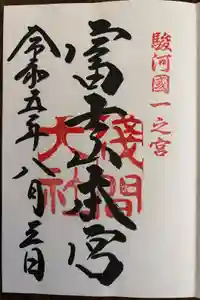 駿河國一之宮
富士山本宮
淺間
大社
令和五年八月三日